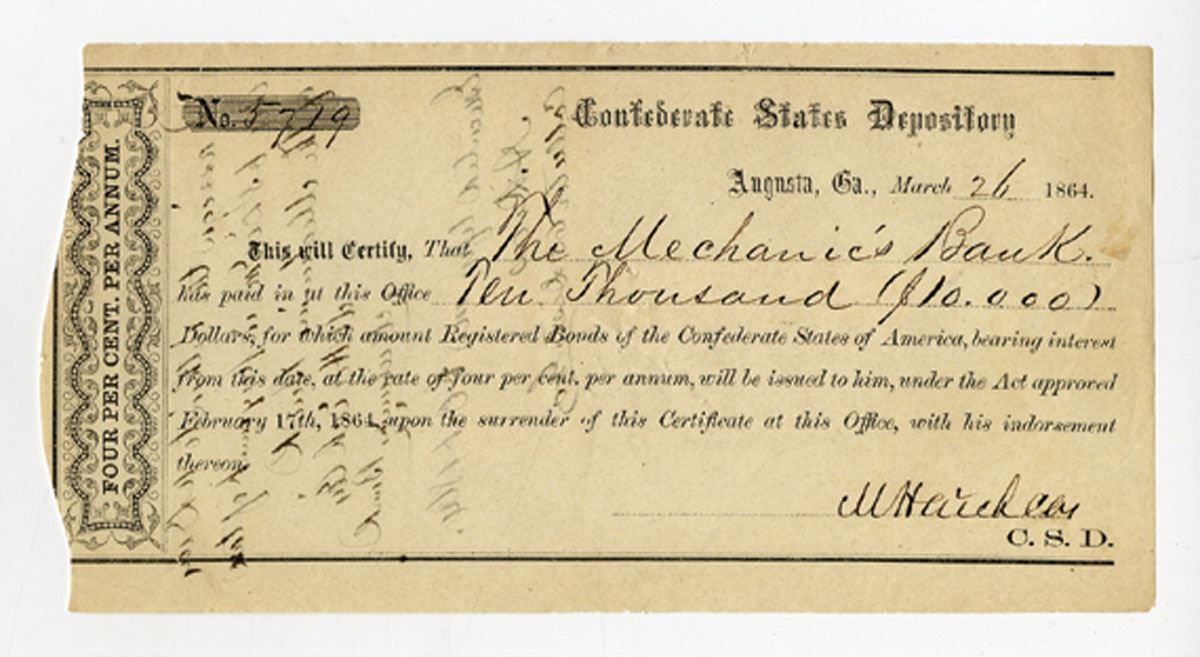 FOUR PER CENT. PER ANNUM.
No. 5779
Confederate States Depository
Augusta, Ga., March 26 1864.
This will Certify, That The Mechanic's Bank.
has paid in at this Office Ten Thousand ($10.000)
Dollars, for which amount Registered Bonds of the Confederate States of America, bearing interest
from this date, at the rate of four per cent. per annum, will be issued to him, under the Act approved
February 17th, 1864, upon the surrender of this Certificate at this Office, with his indorsement
thereon.
C. S. D.